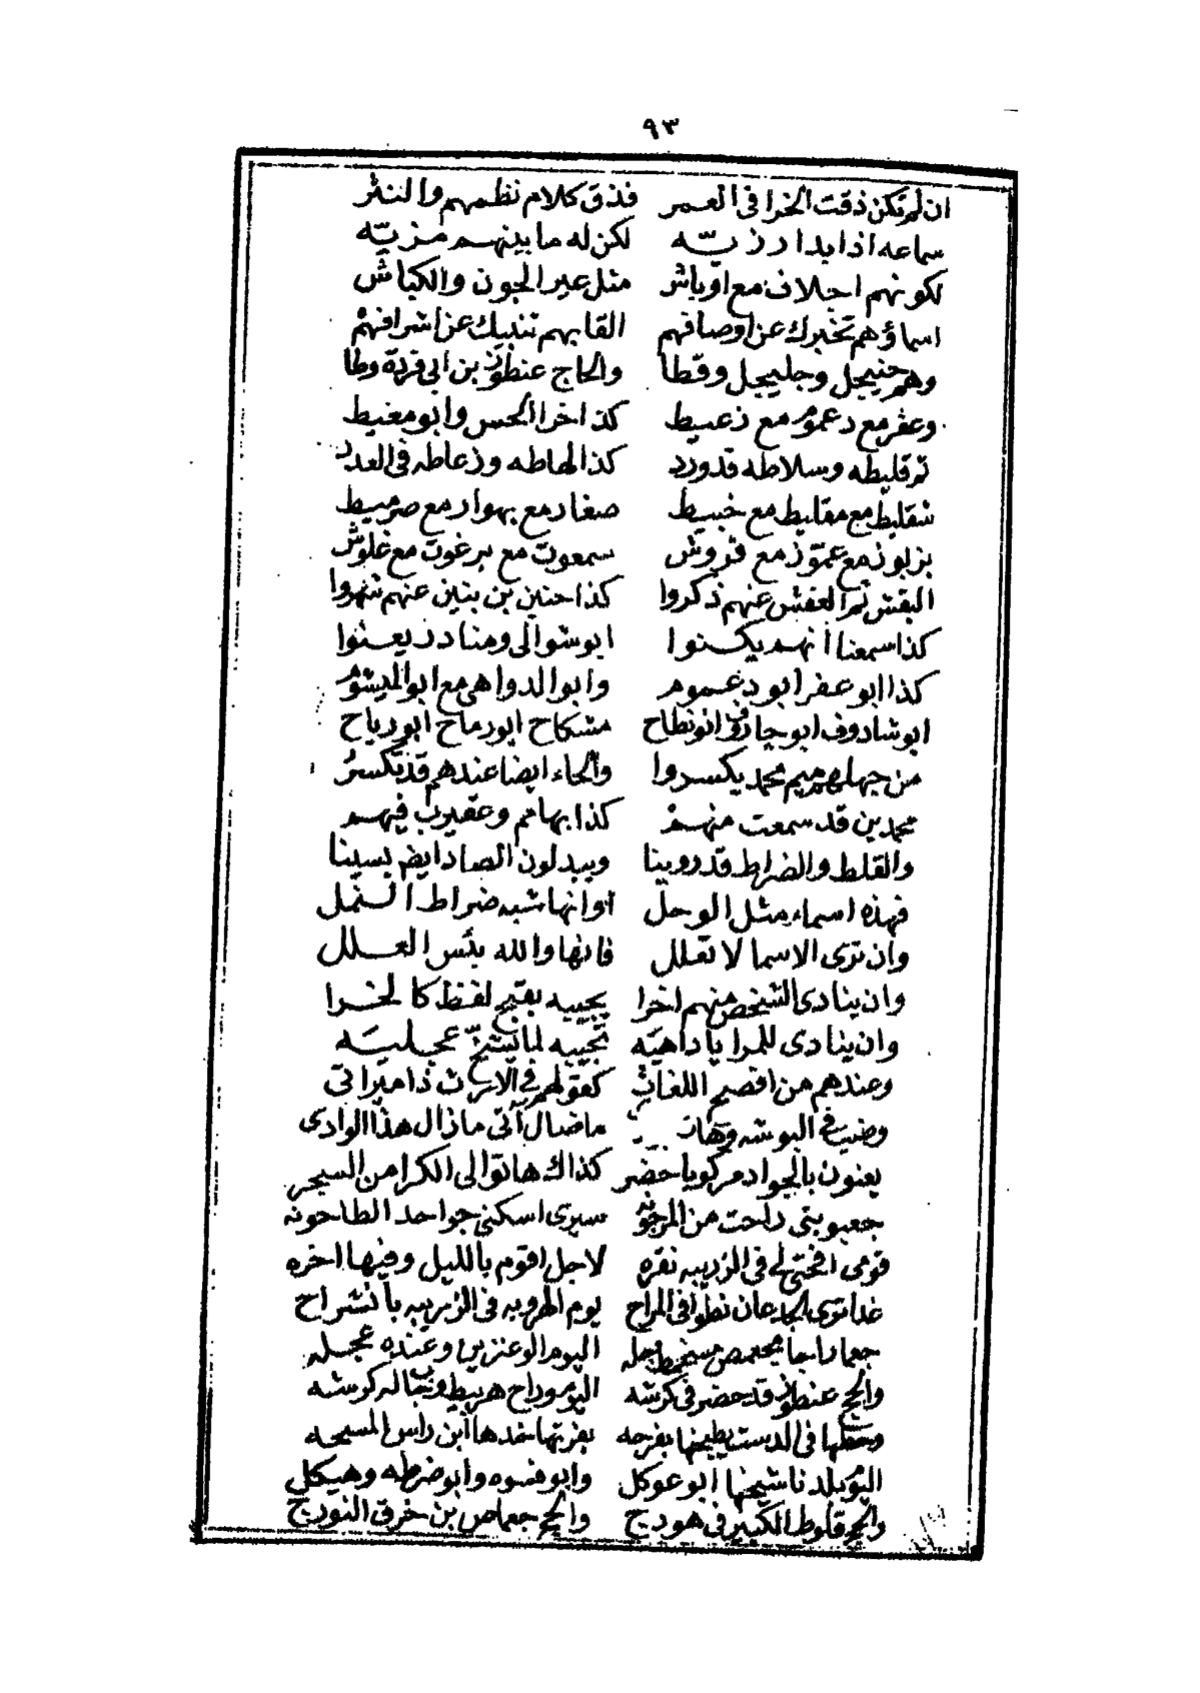 ٩٣
ان لم تكن ذقت الخرا فى العمر فذق كلام نظمهم والنثر
سماعه اذا بدا رزيّه لكن له ما بينهم مزيّه
لكونهم اجلاف مع اوباش مثل عير الجون والكباش
اسماؤهم تخبرك عن اوصافهم القابهم تنبيك عن اشرافهم
وهم حنيجل وجليجل وقطا والحاج عنطوز بن ابى قردة وطا
وعفر مع دعموم مع زعيط كذا خرا الحس وابو معيط
ثم قليطه وسلاطه قد ورد كذا لهاطه وزعاطه فى العدد
شقليط مع مقليط مع خبيط صغار مع بهوار مع صرميط
بزبوز مع عموز مع قروش سمعوت مع برغوت مع غلوش
البقش ثم العفش عنهم ذكروا كذا حنين بن بنين عنهم شهروا
كذا سمعنا انهم يكنوا ابو شوالى ومنادر يعنوا
كذا ابو عفر ابو دغموم وابو الدواهى مع ابو الميشوم
ابو شادوف ابو جاروف ابو نطاح مشكاح ابو رماح ابو رياح
من جهلهم ميم محمد يكسروا والحاء ايضا عندهم قد تكسر
محمدين قد سمعت منهم كذا بهانم وعقيرب فيهم
والقلط والضراط قد روينا ويبدلون الصاد ايض بسينا
فهذه اسماء مثل الوحل اوانها شبه ضراط النمل
وان ترى الاسما لا تعلل فانها والله بئس العلل
وان ينادى الشخص منهم اخرا يجيبه بقبح لفظ كالخرا
وان ينادى للمرا ياداهيه تجيبه لما يشخ عجليه
وعندهم من افصح اللغات كقولهم فى الارث ذا ميراتى
وضيب فى البوشه وهات ماضال اتى ماذال هذا الوادى
يعنون بالجواد مركوبا حضر كذاك هاتوا لى الكرا من السيجر
جعبو بتى راحت من المرجونه سيرى اسكنى جوا حد الطاحونه
قومى افتحى لى فى الزريبه نقره لاجل اقوم بالليل وفيها اخره
غدا ترى الجدعان نطوا فى المراح يوم الهروبه فى الزريبه بانشراح
جعما راجا محعمص مسخمط مجله اليوم الو عنزين وعنده عجله
والحج عنطوز قد حضر فى كرشه اليوم وراح هربيط وجاب له كرشه
وحطها فى الدست يطبخها بفرحه بفرتها خدها ابن راس المسيحه
اليوم بلدنا شيخها ابو عوكل وابو فسوه وابو ضرطه وهيكل
والحج قلوط الكبير فى هودج والحج جعماص بن خرق النورج